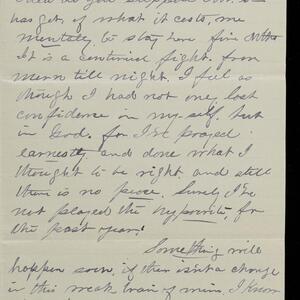 has get, of what it costs, me
mentally to stay here five Mths
It is a continual fight, from
morn till night. I feel as
though I had not only lost
confidence in my self, but
in God. for I've prayed
earnestly and done what I
thought to be right, and still
there is no peace. Surely I've
not played the hypocrite, for
the past year.
Something will
happen soon, if there isn't a change
in this weak brain of mine, I know